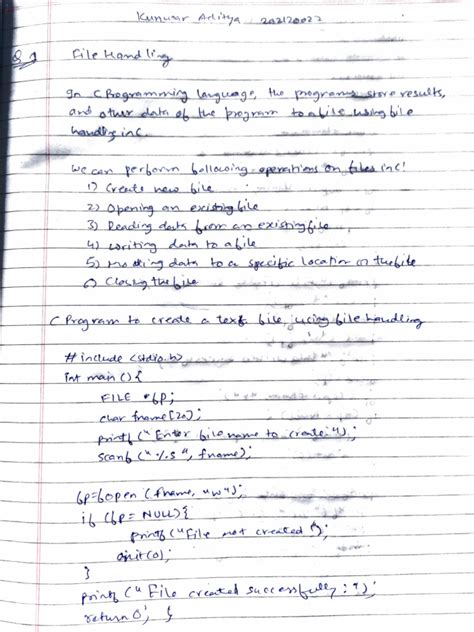 Kunwar Aditya 202120022
Q1 File Handling
In C Programming language, the programs store results,
and other data of the program to a file using file
handling in C.
We can perform following operations on files in C:
1) Create new file
2) Opening an existing file
3) Reading data from an existing file
4) Writing data to a file
5) Moving data to a specific location in the file
6) Closing the file
C Program to create a text file, using file handling
#include <stdio.h>
int main () {
FILE *fp;
char fname[20];
printf ("Enter file name to create: ");
scanf ("%s", fname);
fp=fopen (fname, "w");
if (fp= NULL) {
printf ("File not created !");
exit(0);
}
printf ("File created successfully: ");
return 0; }